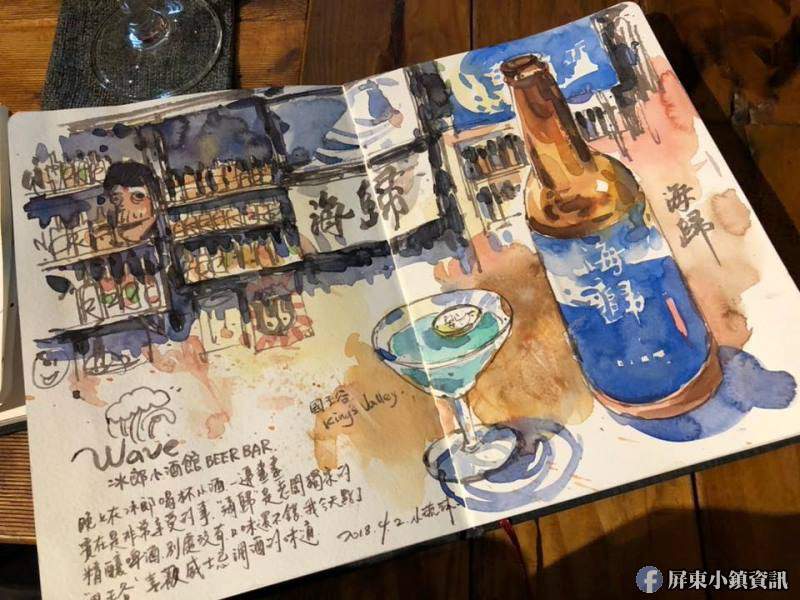 海歸
海歸
海歸
國王谷
King's Valley
Wave
冰郎小酒館 BEER BAR.
晚上在冰郎喝杯小酒一邊畫畫
實在是非常享受的事，海歸是老闆獨家的
精釀啤酒，別處沒有，口味還不錯，我今天點了
國王谷，享受威士忌調酒的味道
2018.4.2.小
屏東小鎮資訊